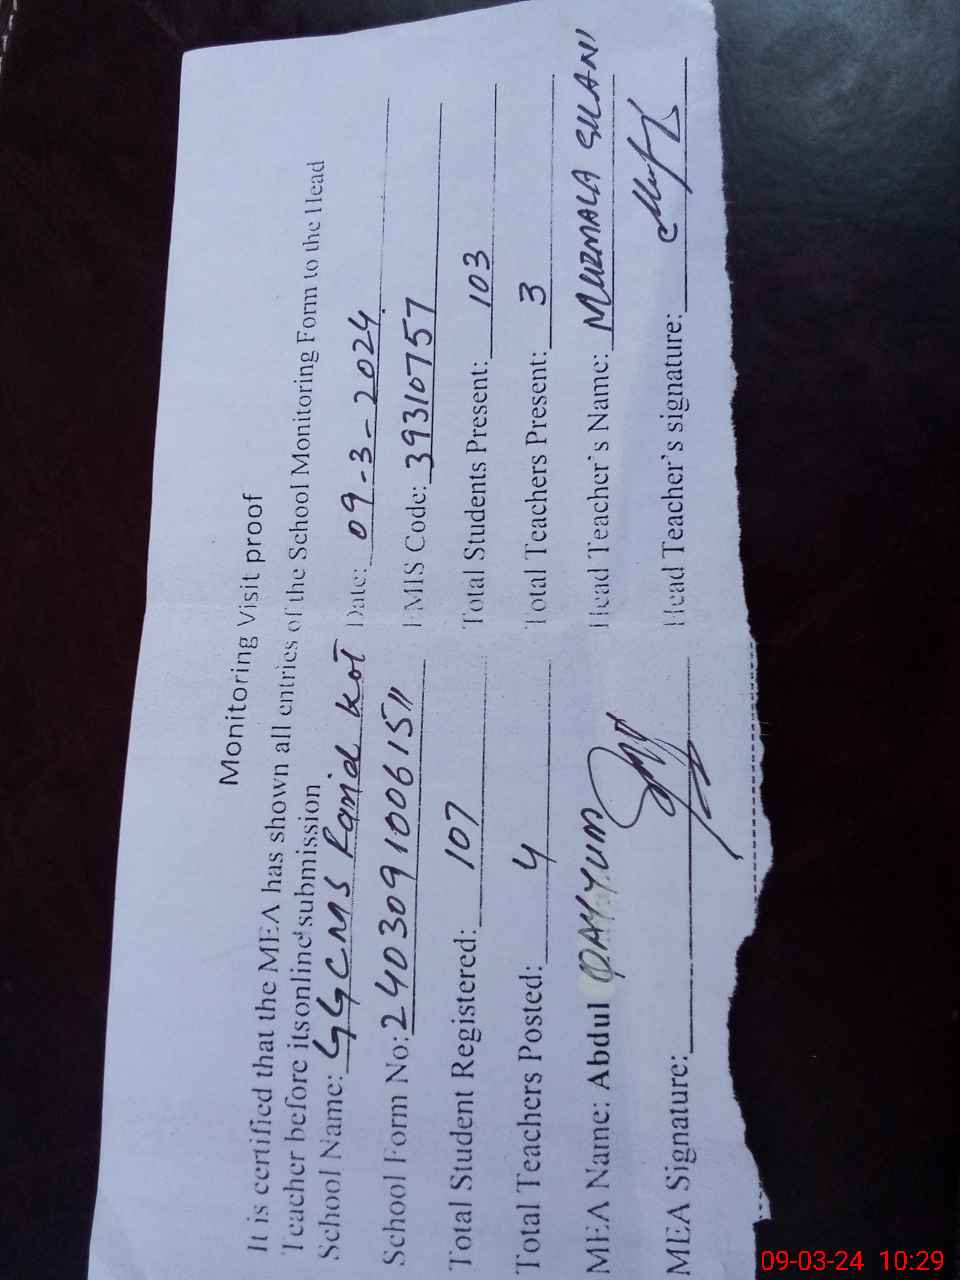 Monitoring Visit proof
It is certified that the MEA has shown all entries of the School Monitoring Form to the Head
Teacher before itsonline submission
School Name: GGCMS Rand Kot Date: 09-3-2024
School Form No: 240309100615 EMIS Code: 39310757
Total Student Registered: 107 Total Students Present: 103
Total Teachers Posted: 4 Total Teachers Present: 3
MEA Name: Abdul QAYYUM Head Teacher's Name: MURMALA GILANI
MEA Signature: Head Teacher's signature:
09-03-24 10:29